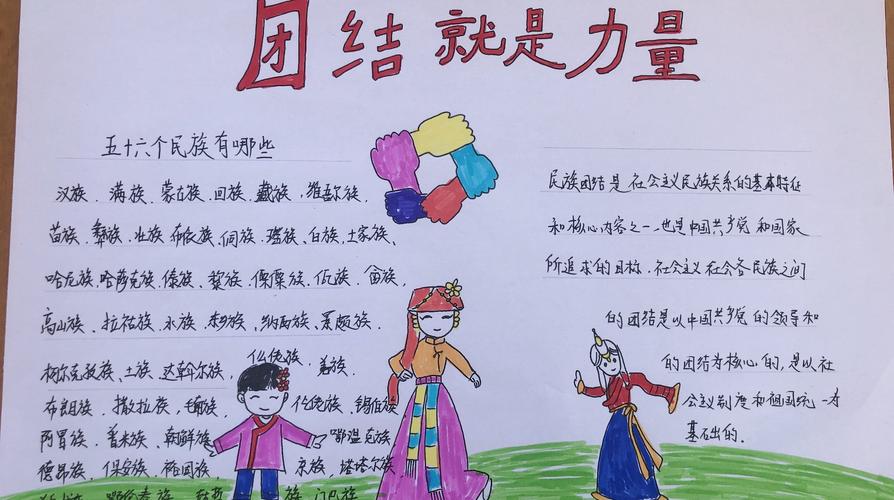 团结就是力量
五十六个民族有哪些
汉族、满族、蒙古族、回族、藏族、维吾尔族、
苗族、彝族、壮族、布依族、侗族、瑶族、白族、土家族、
哈尼族、哈萨克族、傣族、黎族、傈僳族、佤族、畲族、
高山族、拉祜族、水族、东乡族、纳西族、景颇族、
柯尔克孜族、土族、达斡尔族、仫佬族、羌族、
布朗族、撒拉族、毛南族、仡佬族、锡伯族
阿昌族、普米族、朝鲜族、鄂温克族、
德昂族、保安族、裕固族、京族、塔塔尔族
族、门巴族
民族团结是社会主义民族关系的基本特征
和核心内容之一、也是中国共产党和国家
所追求的目标、社会主义社会各民族之间
的团结是以中国共产党的领导和
的团结为核心的,是以社
会主义制度和祖国统一为
基础的.